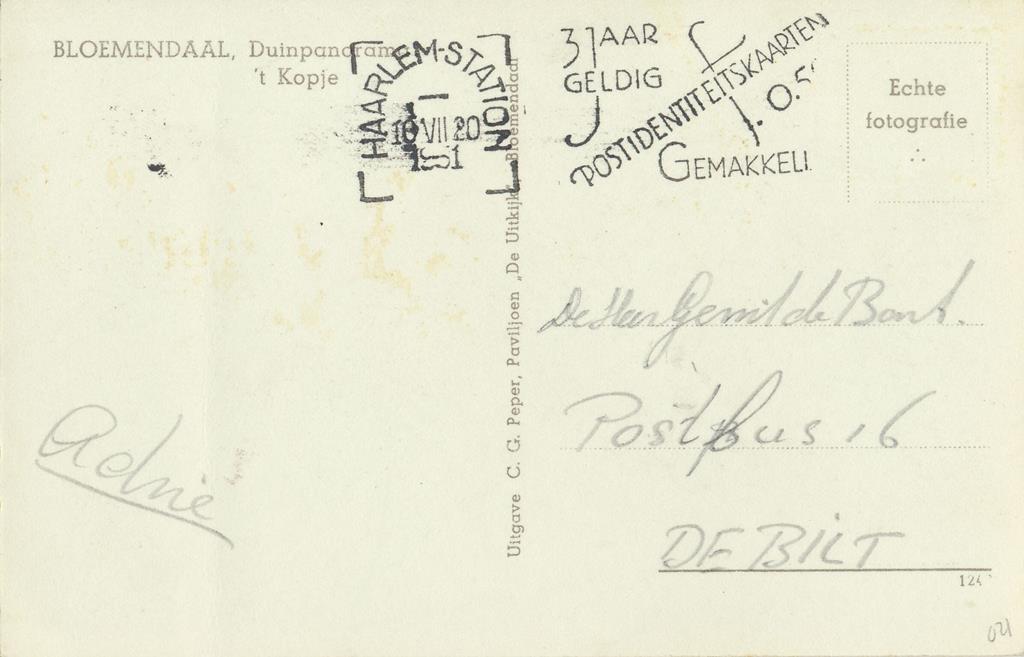 BLOEMENDAAL, Duinpanorama
't Kopje
HAARLEM-STATION
VII 20
1951
3 JAAR
GELDIG
POSTIDENTITEITSKAARTEN
f 1.0.5
GEMAKKELI
Echte
fotografie
Uitgave C. G. Peper, Paviljoen „De Uitkijk" Bloemendaal
De Heer Gerrit de Bont.
Postbus 16
DE BILT
Adrie
124
021